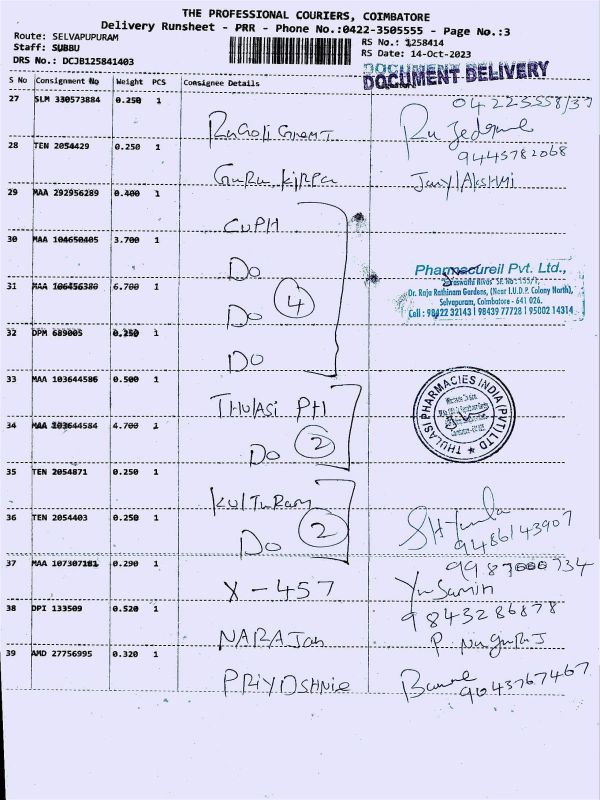 THE PROFESSIONAL COURIERS, COIMBATORE
Delivery Runsheet - PRR - Phone No.:0422-3505555 - Page No.:3
Route: SELVAPUPURAM
Staff: SUBBU
DRS No.: DCJB125841403
RS No.: 1258414
RS Date: 14-Oct-2023
DOCUMENT DELIVERY
S No Consignment No Weight PCS Consignee Details
27 SLM 330573884 0.250 1
28 TEN 2054429 0.250 1
9445782068
29 MAA 292956289 0.400 1
CUPH
30 MAA 104650405 3.700 1
Do
31 MAA 106456380 6.700 1
Do
4
32 DPM 689005 0.250 1
Do
Pharmacureil Pvt. Ltd.,
Dr. Raja Rathinam Gardens, (Near I.U.D.P. Colony North),
Selvapuram, Coimbatore - 641 026.
Cell : 98422 32143 | 98439 77728 | 95002 14314
33 MAA 103644586 0.500 1
THULASI PH
34 MAA 103644584 4.700 1
Do
2
THULASI PHARMACIES INDIA (PVT) LTD
35 TEN 2054871 0.250 1
36 TEN 2054403 0.250 1
Do
2
9486143907
37 MAA 107307181 0.290 1
X - 457
38 DPI 133509 0.520 1
9843286878
39 AMD 27756995 0.320 1
9043767467